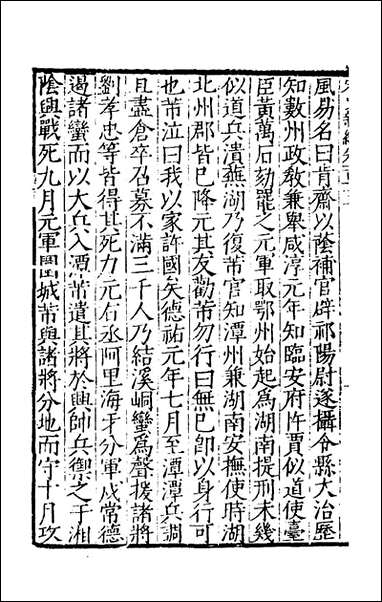 風易名曰肯齋以蔭補官辟祁陽尉遂攝令縣大治歷
知數州政教兼舉咸淳元年知臨安府忤賈似道使臺
臣黃萬石劾罷之元軍取鄂州始起爲湖南提刑未幾
似道兵潰蕪湖乃復芾官知潭州兼湖南安撫使時湖
北州郡皆已降元其友勸芾勿行曰無已卽以身行可
也芾泣曰我以家許國矣德祐元年七月至潭潭兵調
且盡倉卒召募不滿三千人乃結溪峒蠻爲聲援諸將
劉孝忠等皆得其死力元右丞阿里海牙分軍戍常德
遏諸蠻而以大兵入潭芾遣其將於興帥兵御之于湘
陰興戰死九月元軍圍城芾與諸將分地而守十月攻